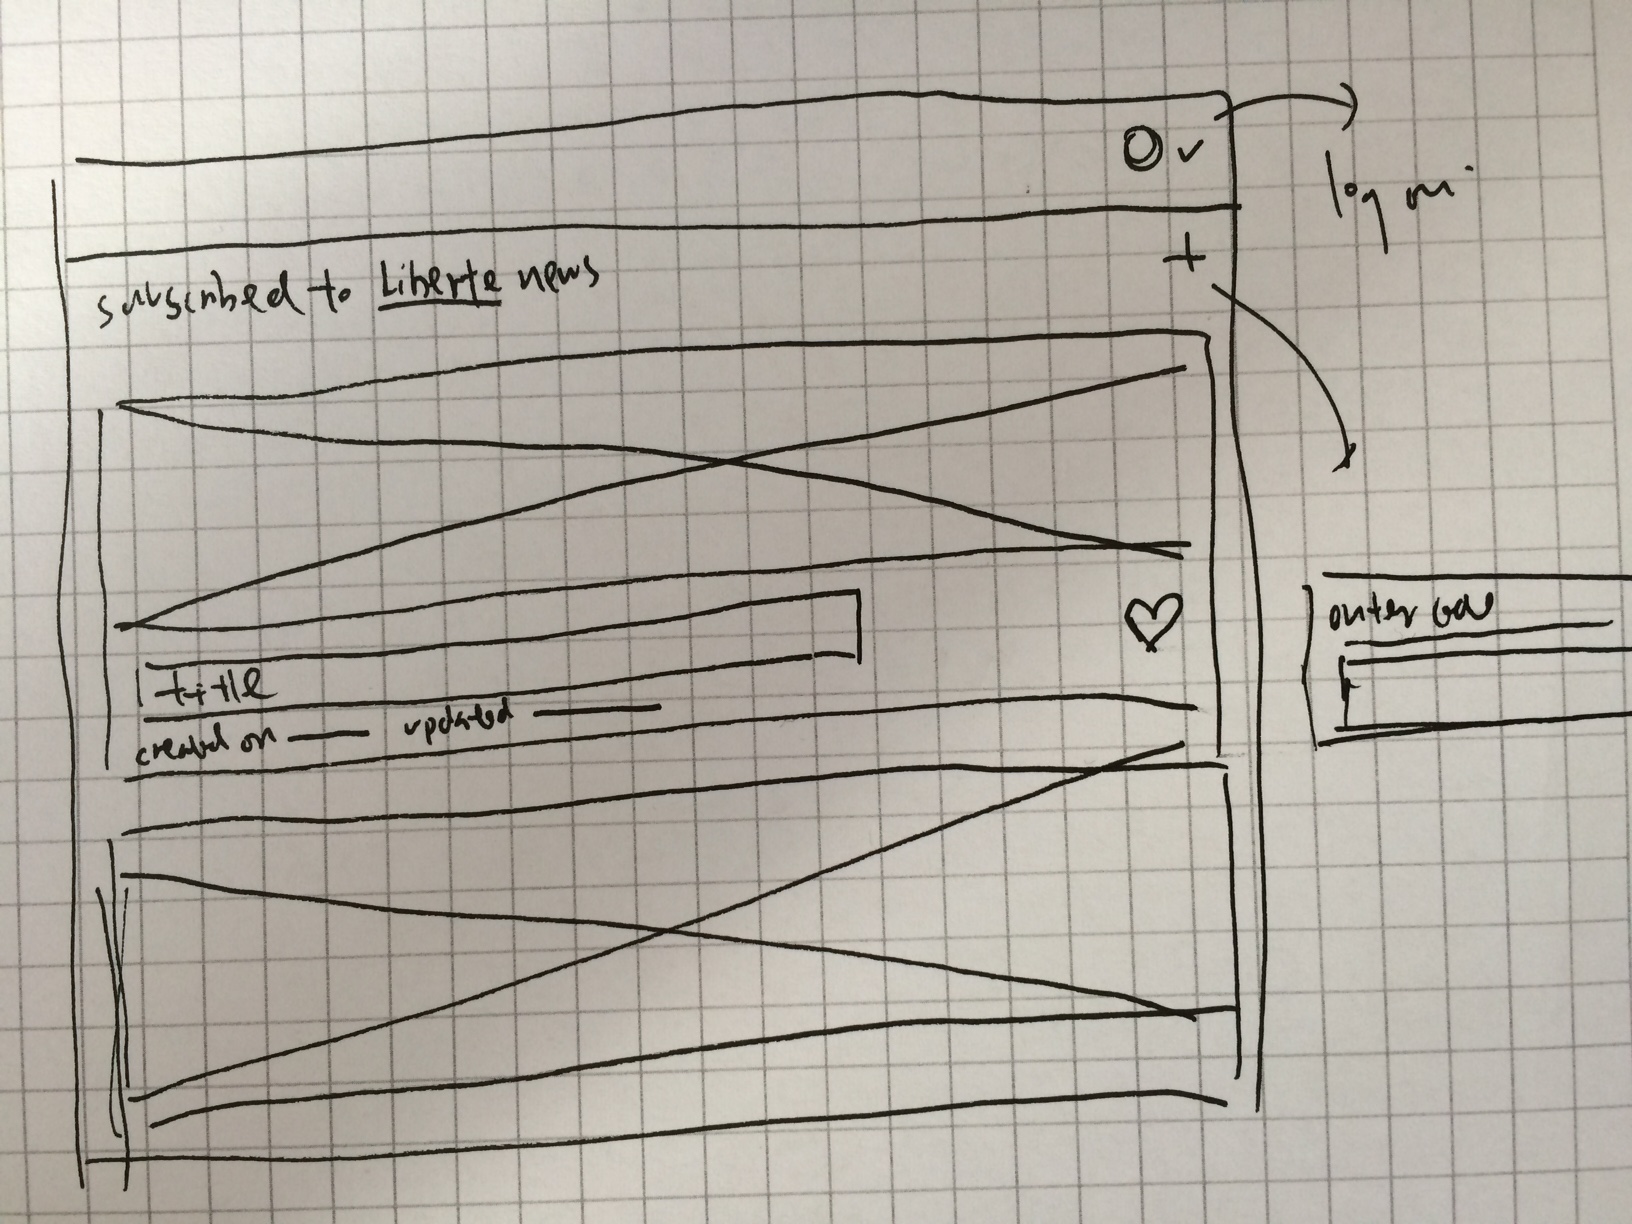 log
subscribed to Liberte news
title
created on updated
enter